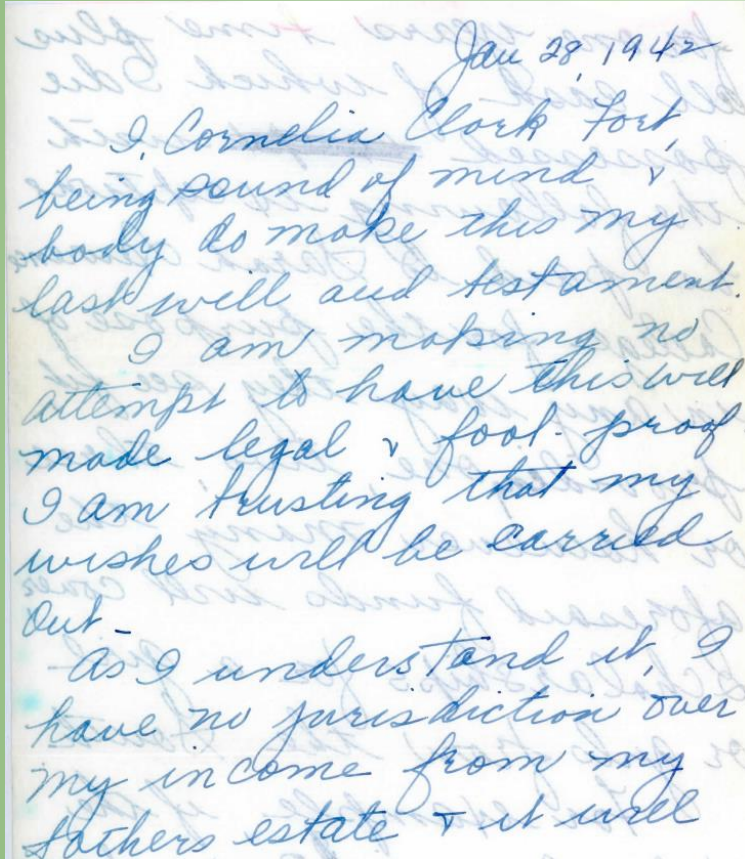 Jan 28, 1942
I, Cornelia Clark Fort,
being sound of mind &
body do make this my
last will and testament.
I am making no
attempt to have this will
made legal & fool-proof
I am trusting that my
wishes will be carried
out -
As I understand it, I
have no jurisdiction over
my income from my
fathers estate & it will